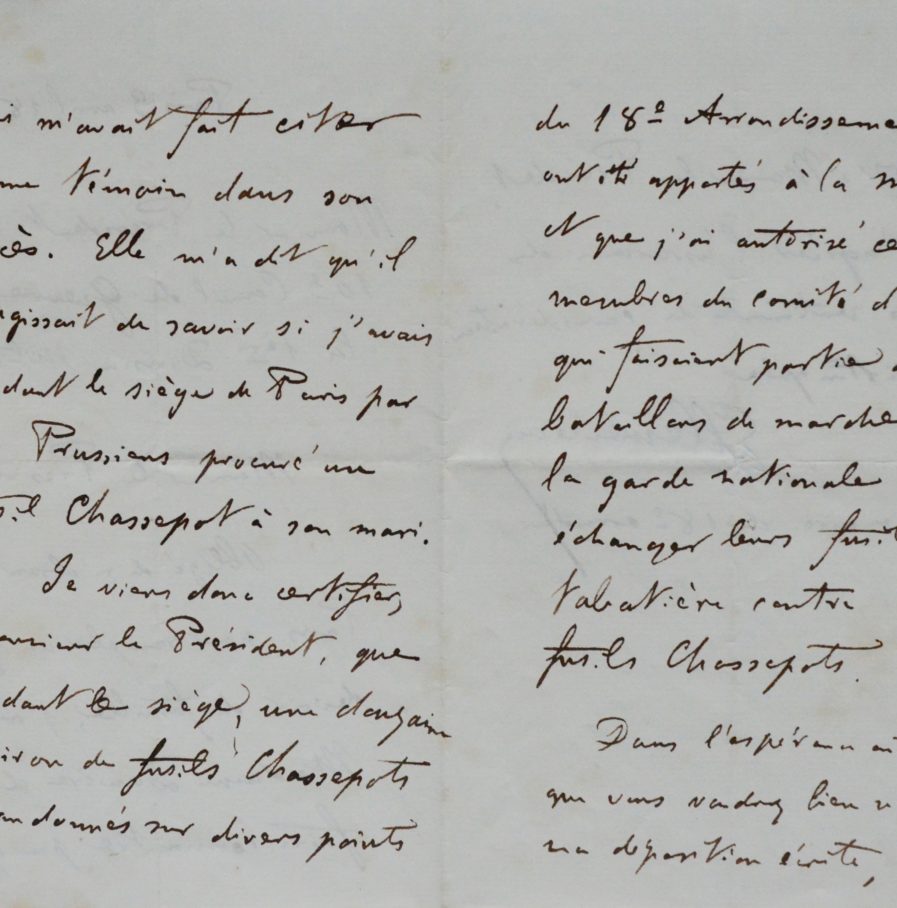 i m'avait fait citer
me témoin dans son
cès. Elle m'a dit qu'il
gissait de savoir si j'avais
dant le siège de Paris par
Prussiens procuré un
sil Chassepot à son mari.
Je viens donc certifier,
onsieur le Président, que
dant le siège, une douzaine
iron de fusils Chassepots
andonnés sur divers points
du 18e Arrondisseme
ont été apportés à la m
et que j'ai autorisé ce
membres du comité d
qui faisaient partie d
bataillons de marche
la garde nationale
échanger leurs fusil
tabatière contre
fusils Chassepots.
Dans l'espérance
que vous voudrez bien
ma déposition écrite,